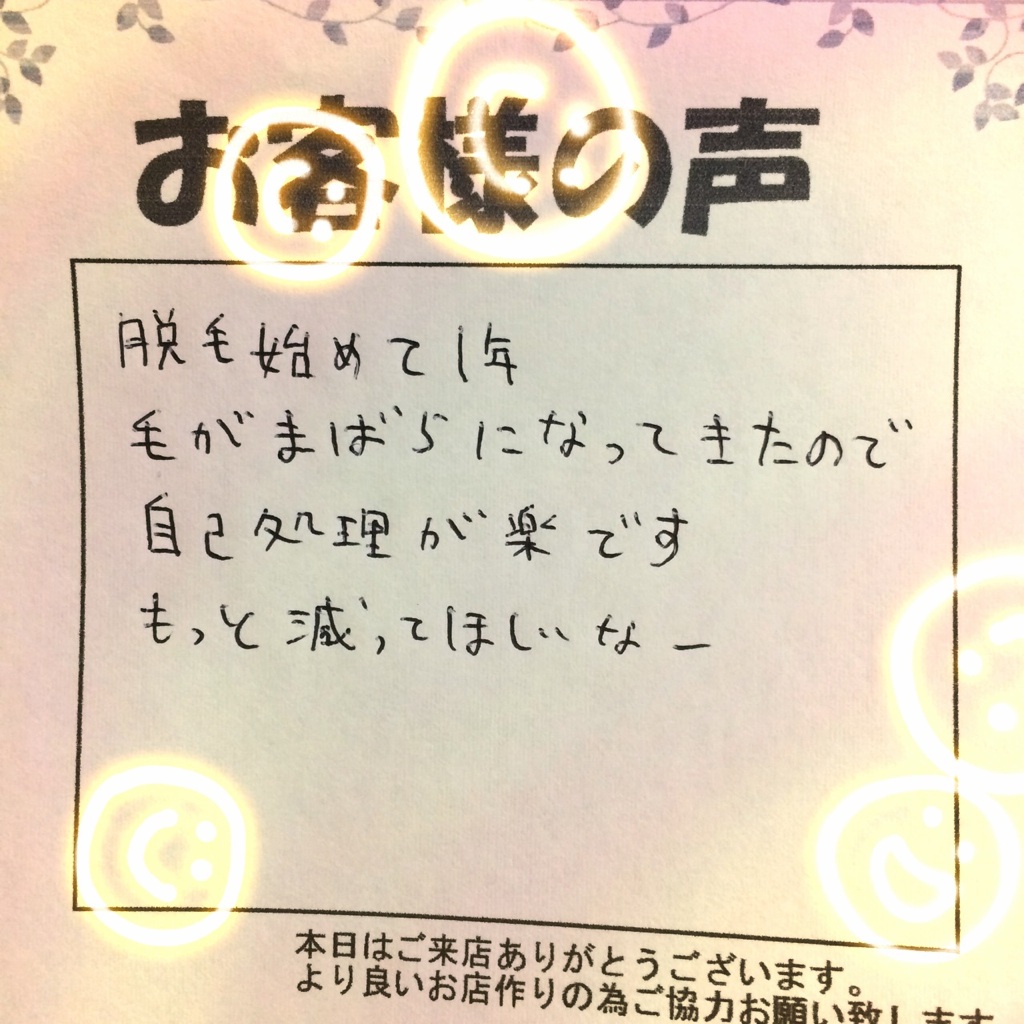 お客様の声
脱毛始めて1年
毛がまばらになってきたので
自己処理が楽です
もっと減ってほしいなー
本日はご来店ありがとうございます。
より良いお店作りの為ご協力お願い致します